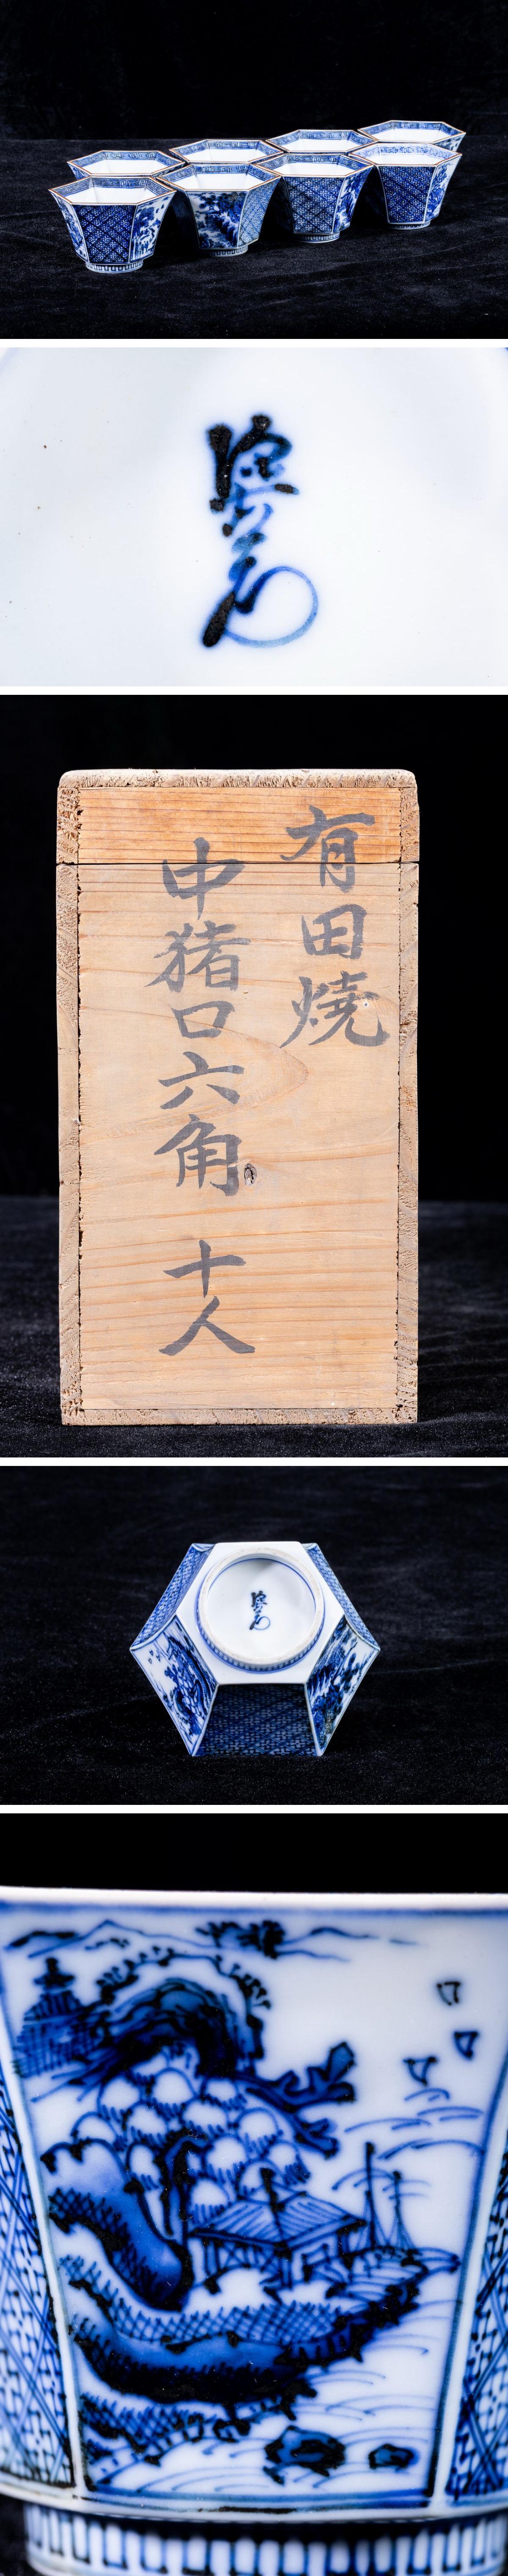 有田燒
中猪口六角 十人